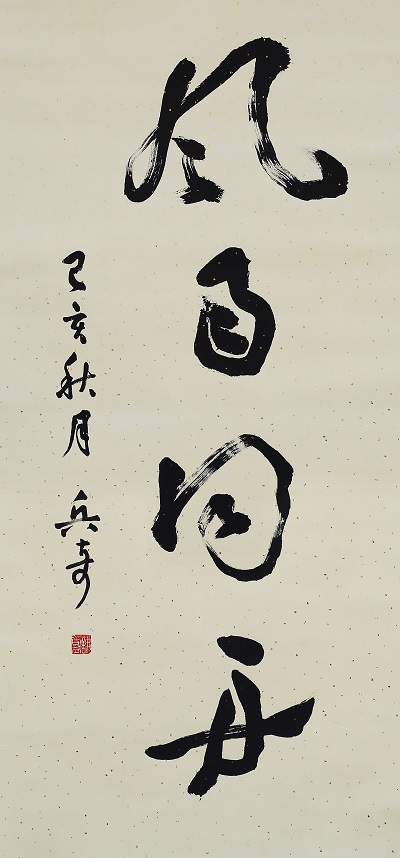 風雨同舟
己亥秋月 兵奇